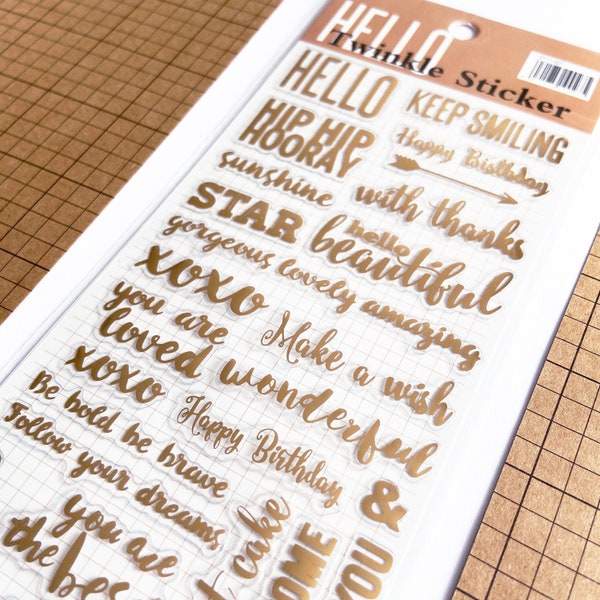 HELLO
Twinkle Sticker
HELLO
KEEP SMILING
HIP HIP
HOORAY
Happy Birthday
sunshine
with thanks
STAR
hello
beautiful
gorgeous lovely amazing
xoxo
you are
loved
Make a wish
wonderful
xoxo
Be bold be brave
Happy Birthday
Follow your dreams
&
you are
the
cake
YOU